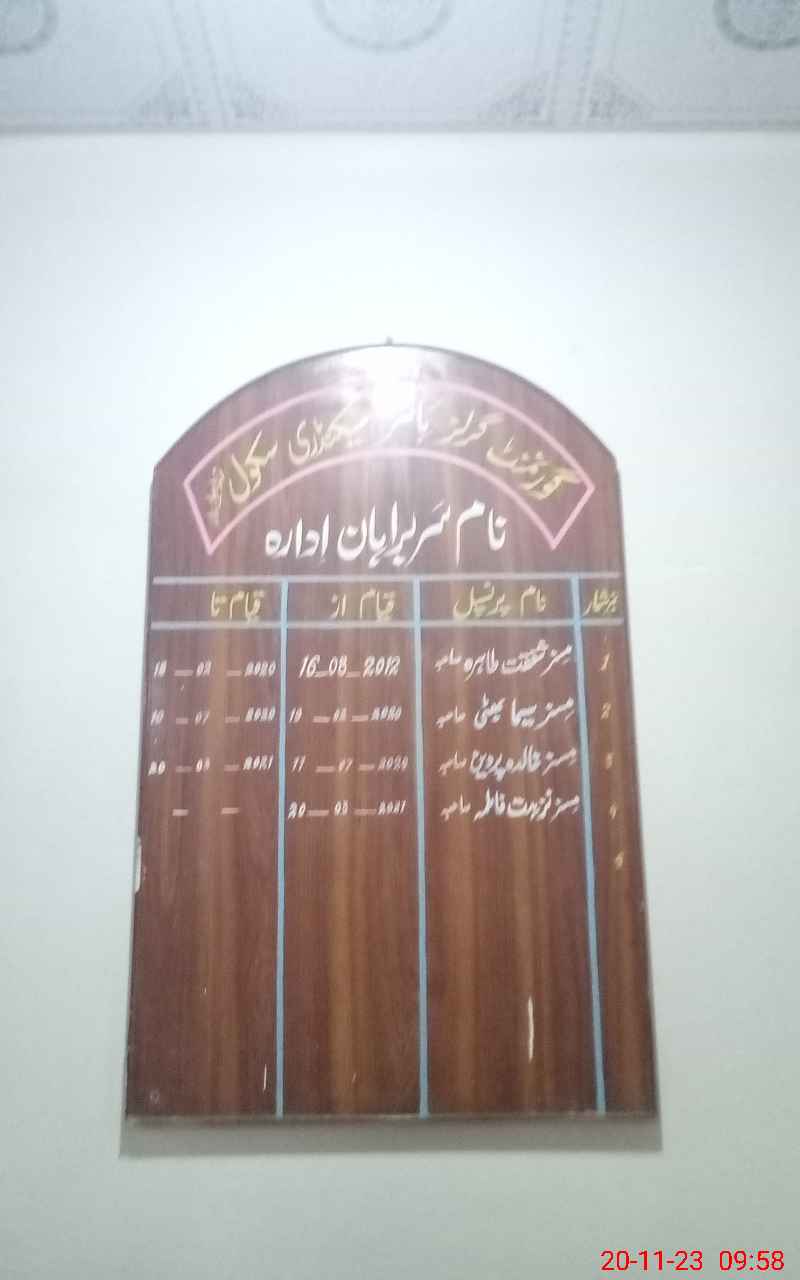 گورنمنٹ گرلز ہائر سیکنڈری سکول
نام سربراہان ادارہ
نمبرشمار نام پرنسپل قیام از قیام تا
1 مسز شفقت طاہرہ صاحبہ 16_08_2012 18 — 02 — 2020
2 مسز سیما بھٹی صاحبہ 19 — 02 — 2020 10 — 07 — 2020
3 مسز خالدہ پروین صاحبہ 11 — 07 — 2020 20 — 03 — 2021
4 مسز نزہت فاطمہ صاحبہ 20 — 03 — 2021 — —
5
20-11-23 09:58